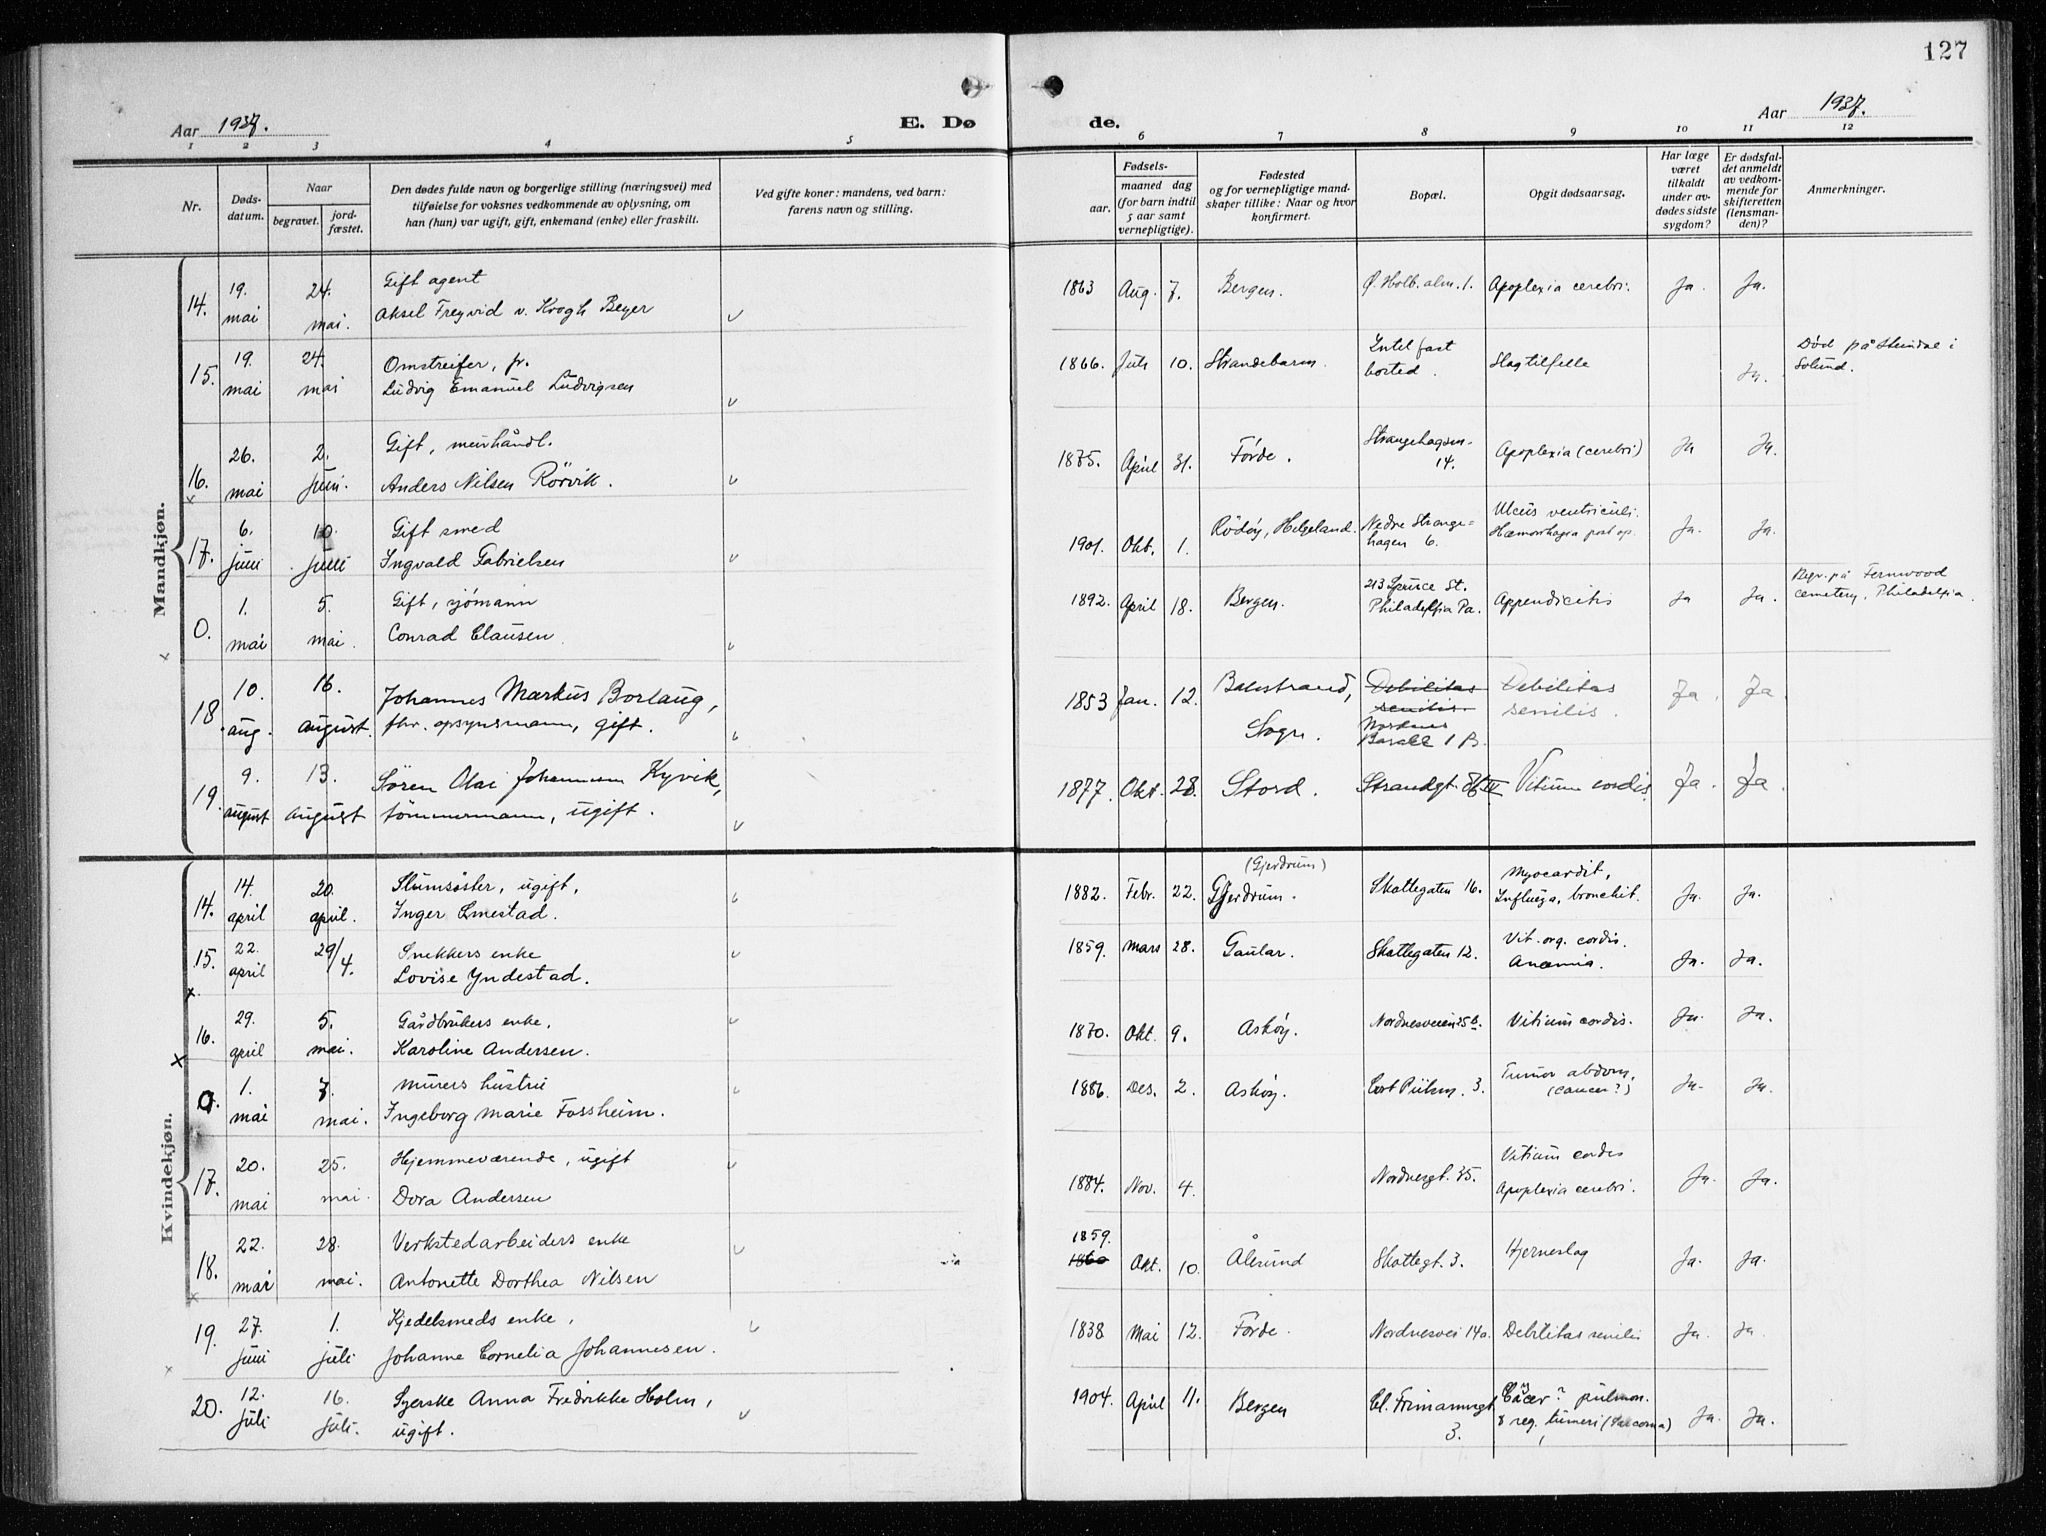 127
Aar 1937. E. Dø de. Aar 1937.
1 2 3 4 5 6 7 8 9 10 11 12
Nr.
Døds-
datum.
Naar
begravet.
jord-
fæstet.
Den dødes fulde navn og borgerlige stilling (næringsvei) med
tilføielse for voksnes vedkommende av oplysning, om
han (hun) var ugift, gift, enkemand (enke) eller fraskilt.
Ved gifte koner: mandens, ved barn:
farens navn og stilling.
Fødsels-
aar.
maaned dag
(for barn indtil
5 aar samt
vernepligtige).
Fødested
og for vernepligtige mand-
skaper tillike: Naar og hvor
konfirmert.
Bopæl.
Opgit dødsaarsag.
Har læge
været
tilkaldt
under av-
dødes sidste
sygdom?
Er dødsfal-
det anmeldt
av vedkom-
mende for
skifteretten
(lensman-
den)?
Anmerkninger.
Mandkjøn.
14. 19. mai 24. mai. Gift agent
Aksel Freyvid v. Krogh Beyer
1863 Aug. 7. Bergen. Ø. Holb. alm. 1. Apoplexia cerebri. Ja. Ja.
15. 19. mai 24. mai Omstreifer, fr.
Ludvig Emanuel Ludvigsen
1866 Juli 10. Strandebarm. Intet fast
bosted. Slagtilfelle Ja. Død på Steindal i
Solund.
16. 26. mai 2. juni. Gift, murhåndl.
Anders Nilsen Rörvik.
1875. April 31. Förde. Strangehagen
14. Apoplexia (cerebri) Ja Ja.
17. 6. juni 10. juni Gift smed
Ingvald Fabrielsen
1901. Okt. 1. Rödöy, Helgeland. Nedre Strange-
hagen 6. Ulcus ventriculi.
Hæmorrhagia post op. Ja. Ja.
0. 1. mai 5. mai. Gift, sjómann
Conrad Clausen
1892. April 18. Bergen. 213 Spruce St.
Philadelfia Pa. Appendicitis Ja Ja. Begr. på Fernwood
cemetery, Philadelfia.
18. 10. aug. 16. august. Johannes Markus Borlaug,
fhv. opsynsmann, gift.
1853 Jan. 12. Balestrand,
Sogn. Debilitas
senilis.
Nordnes
Barakk 1 B. Debilitas
senilis. Ja. Ja
19. 9. august 13. august Sören Olai Johannesen Kyvik,
tömmermann, ugift.
1877. Okt. 28. Stord. Strandgt. 86 III Vitium cordis. Ja. Ja.
Kvindekjøn.
14. 14. april 20. april. Slumsöster, ugift,
Inger Emestad.
1882. Febr. 22. (Gjerdrum)
Gjerdrum. Skottegaten 16. Myocardit,
Influenza, bronchit. Ja. Ja.
15. 22. april 29/4. Snekkers enke
Lovise Yndestad.
1859. Mars 28. Gaular. Skottegaten 12. Vit. org. cordis.
Anæmia. Ja. Ja.
16. 29. april 5. mai. Gårdbrukers enke,
Karoline Andersen.
1870. Okt. 9. Asköy. Nordnesveien 25 b. Vitium cordis. Ja. Ja.
0. 1. mai 7. mai. Murers hustru
Ingeborg Marie Fossheim.
1886. Des. 2. Asköy. Cort Piilsm. 3. Tumor abdom.
(cancer?) Ja. Ja.
17. 20. mai 25. mai. Hjemmeværende, ugift
Dora Andersen
1884. Nov. 4. Nordnesgt. 35. Vitium cordis
Apoplexia cerebri. Ja. Ja.
18. 22. mai 28. mai. Verkstedarbeiders enke
Antonette Dorthea Nilsen
1859.
1860 Okt. 10. Ålesund Skottegt. 3. Hjerneslag Ja. Ja.
19. 27. juni 1. juli Kjedelsmeds enke,
Johanne Cornelia Johannesen.
1838 Mai 12. Förde. Nordnesvei 14a. Debilitas senilis Ja. Ja.
20. 12. juli 16. juli. Syerske Anna Fredrikke Holm,
ugift.
1904. April 11. Bergen Cl. Frimannsgt.
3. Cancer? pulmon.
& reg. tumeri (Sarcoma) Ja. Ja.